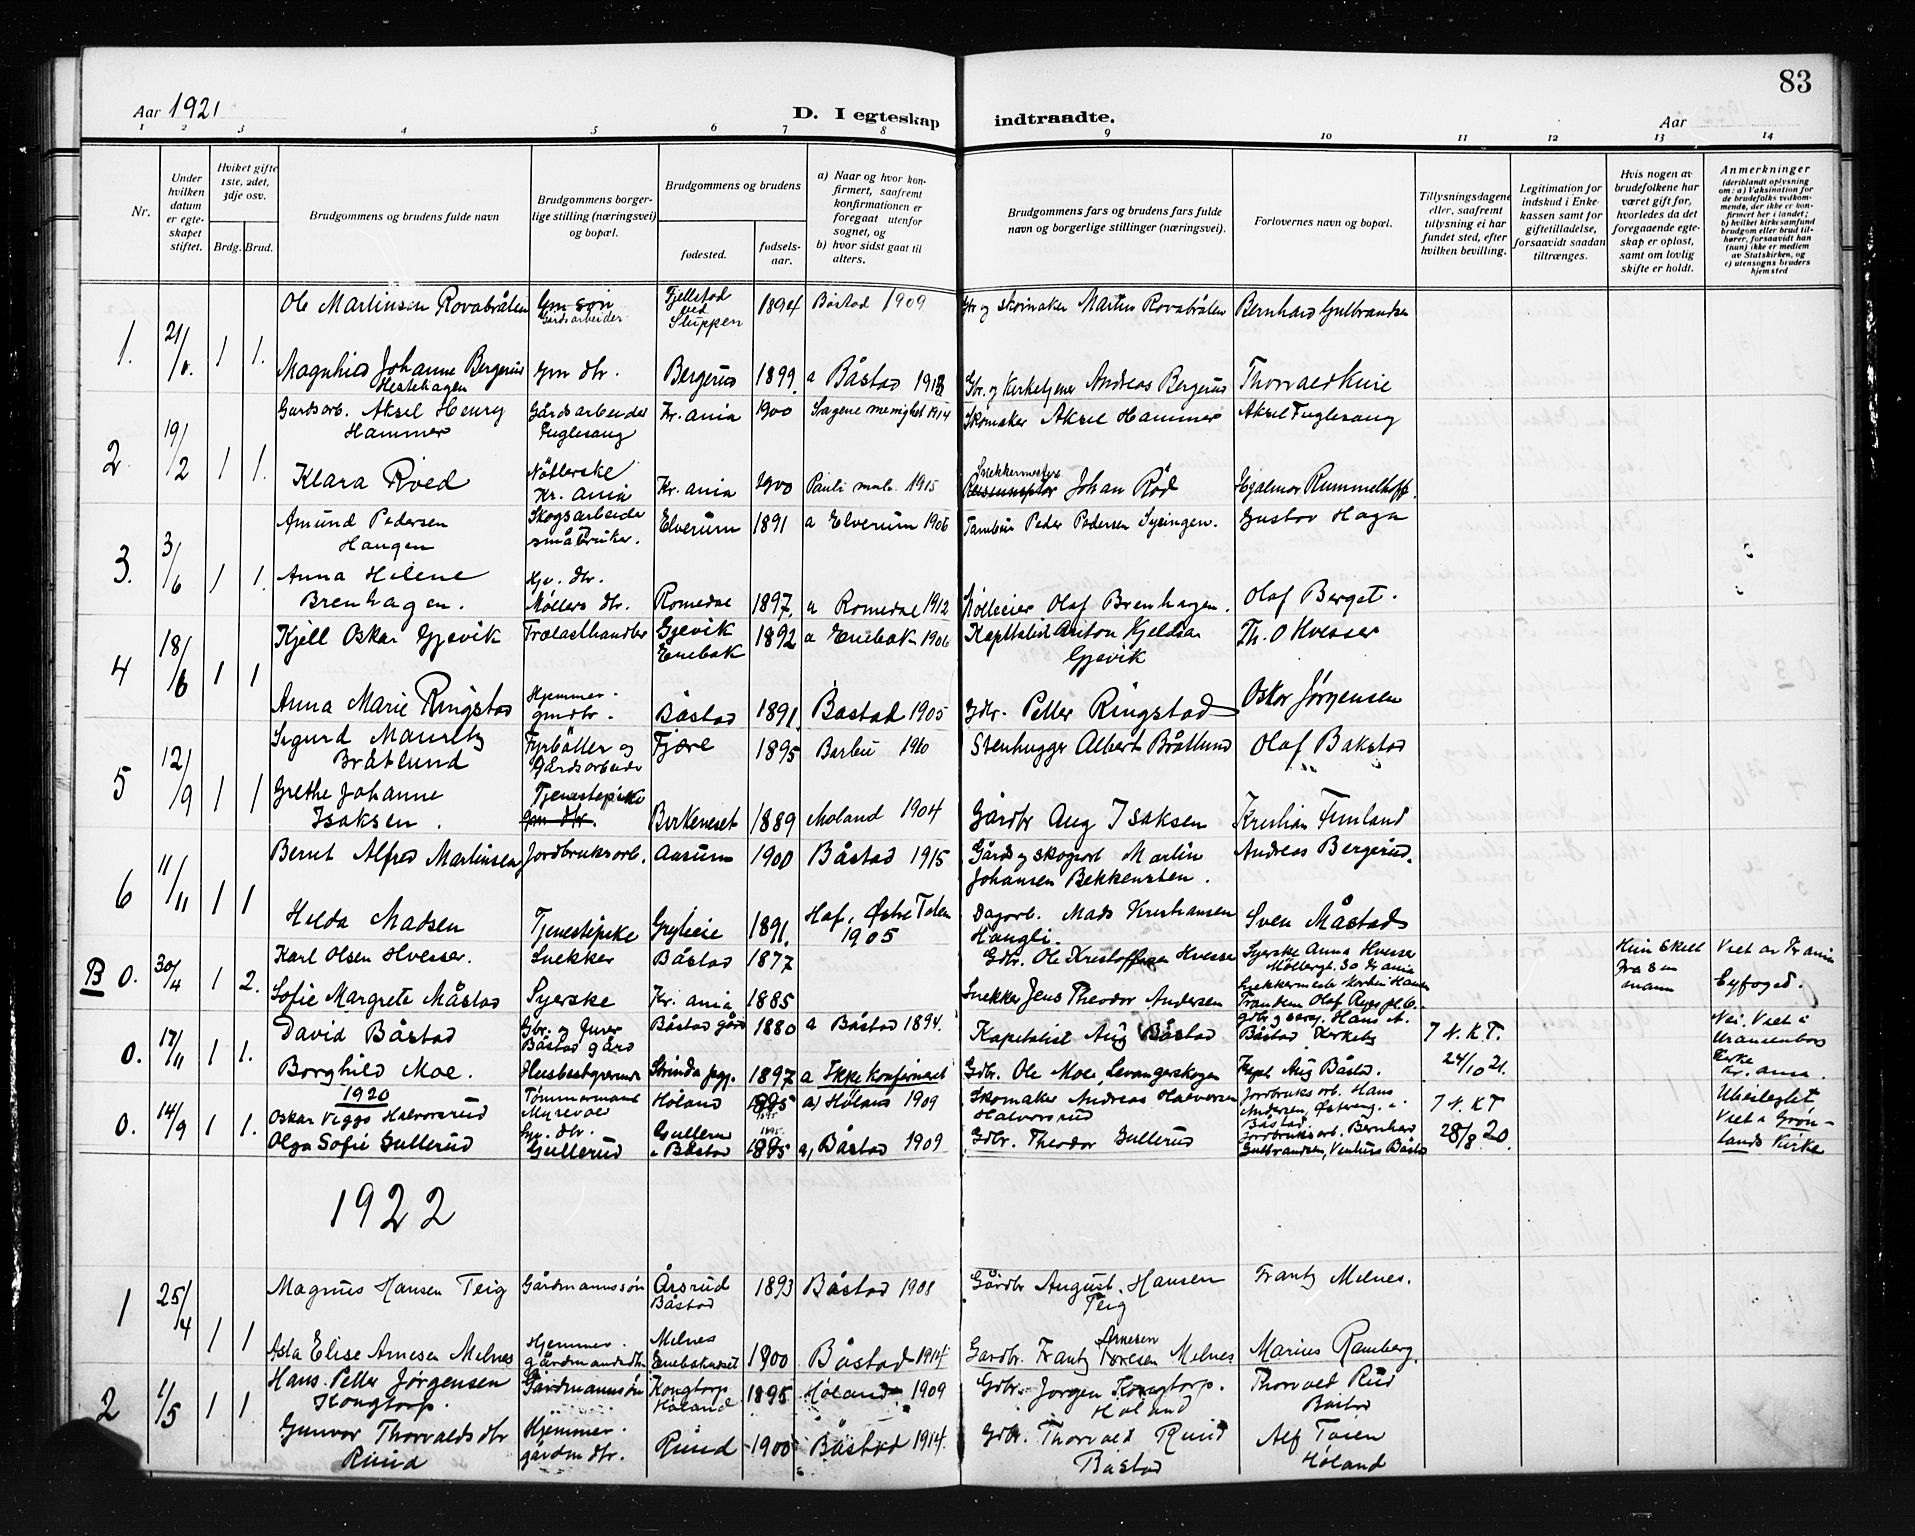 83
Aar 1921
D. I egteskap indtraadte.
Aar
1 2 3 4 5 6 7 8 9 10 11 12 13 14
Nr.
Under hvilken datum er egteskapet stiftet.
Hviket gifte 1ste, 2det, 3dje osv.
Brdg. Brud.
Brudgommens og brudens fulde navn
Brudgommens borgerlige stilling (næringsvei) og bopæl.
Brudgommens og brudens
fødested.
fødselsaar.
a) Naar og hvor konfirmert, saafremt konfirmationen er foregaat utenfor sognet, og
b) hvor sidst gaat til alters.
Brudgommens fars og brudens fars fulde navn og borgerlige stillinger (næringsvei).
Forlovernes navn og bopæl.
Tillysningsdagene eller, saafremt tillysning ei har fundet sted, efter hvilken bevilling.
Legitimation for indskud i Enkekassen samt for giftetilladelse, forsaavidt saadan tiltrænges.
Hvis nogen av brudefolkene har været gift før, hvorledes da det foregaaende egteskap er opløst, samt om lovlig skifte er holdt.
Anmerkninger (deriblandt oplysning om: a) Vaksination for de brudefolks vedkommende, der ikke er konfirmert her i landet; b) hvilket kirkesamfund brudgom eller brud tilhører, forsaavidt han (hun) ikke er medlem av Statskirken, og c) utensogns bruders hjemsted
Ole Martinsen Rovabråten Gm søn Gårdsarbeider Fjellstad ved Sluppen 1894 Båstad 1909 Gbr og skomaker Martin Rovabråten Bernhard Gulbrandsen
1. 21/ 1 1.
Magnhild Johanne Bergerud Hestehagen Gm dtr. Bergerud 1899. a Båstad 1913 Gbr. og Kirketjener Andreas Bergerud Thorvald
Gardsarb. Aksel Henry Hammer Gårdsarbeider Fuglesang Kr.ania 1900 Sagene menighet 1914 Skomaker Aksel Hammer Aksel Fuglesang
2. 19/2 1 1.
Klara Röed Kr. ania Kr. ania 1900 Pauli 1915 Snekkermester Johan Röd Hjalmar Rummelhoff.
Amund Pedersen Haugen Skogsarbeider småbruker. Elverum 1891 a Elverum 1906 Peder Pedersen Gustav Haga
3. 3/6 1 1.
Anna Helene Brenhagen. Hj. dtr. Møllers dtr. Romedal 1897. a Romedal 1912 Mølleeier Olaf Brenhagen. Olaf Berget.
Kjell Oskar Gjevik Trælasthandler Gjevik Enebak 1892 a Enebak 1906 Kapitalist Anton Kjeldsen Gjevik Th. O Hvesser
4 18/6 1 1
Anna Marie Ringstad Hjemmev. gmdtr. Båstad 1891. Båstad 1905 Gbr. Petter Ringstad Oskar Jørgensen
Sigurd Mauritz Bråtlund Fyrbøter og Gårdsarbeider Fjære 1895 Barbu 1910 Stenhugger Albert Bråtlund Olaf Bakstad
5 12/9 1 1
Grethe Johanne Isaksen. Tjenestepike Gm dtr. Birkeneset 1889 Moland 1904 Gårdbr Aug Isaksen Kristian Femland
Bernt Alfred Martinsen Jordbruksarb. Aasum 1900 Båstad 1915 Gårds og skogsarb Martin Johansen Bekkensten. Andreas Bergerud.
6 11/11 1 1
Hilda Madsen Tjenestepike 1891. Hof, Østre Toten 1905 Dagarb. Mads Kristiansen Haugli. Sven Måstad
B 0. 30/4 1 2.
Karl Olsen Hvesser. Snekker Båstad 1877 Gdbr. Ole Kristoffersen Hvesser Syerske Anna Hvesser Møllergt. 30 Kr ania Hun skilt fra sin mann Viet av Kr ania Byfoged.
Sofie Margrete Måstad Syerske Kr. ania 1885 Snekker Jens Theodor Andersen
0. 17/11 1 1.
David Båstad Gbr. og Båstad gård Båstad gård 1880 a Båstad 1894. Kapitalist Aug Båstad Båstad Kirkeby 7 N. K T. 24/10 21. Nei. Viet i Uranienborg Kirke Kr. ania.
Borghild Moe. Husbestyrerinde Strinda 1897 a Ikke konfirmert Gdbr. Ole Moe, Levangerskogen Kapt Aug Båstad.
1920
0. 14/9 1 1.
Oskar Viggo Halvorsrud Tømmermand Myrevold Høland 1895 a) Høland 1909 Skomaker Andreas Halvorsen Halvorsrud Jordbruksarb. Hans Andersen, Østeng i Båstad 7 N. K T 28/8 20. Ubeslegtet Viet i Grønlands Kirke
Olga Sofie Gullerud Gm. dtr. Gullerud Gullerud i Båstad 1895 a, Båstad 1909 Gdbr. Theodor Gullerud Jordbruksarb. Bernhard Gulbrandsen, Båstad
1922
Magnus Hansen Teig Gårdmannssøn Årsrud Båstad 1893 Båstad 1908 Gårdbr August Hansen Teig Frantz Melnes.
1 25/4 1 1
Asta Elise Arnesen Melnes Hjemmev. gårdmandsdtr. Melnes 1900 Båstad 1914 Gårdbr. Frantz Arnesen Melnes Marius Ramberg.
Hans Petter Jörgensen Kongtorp. Gårdmannssøn Kongtorp Høland 1895 Høland 1909 Gdbr. Jørgen Kongtorp. Høland Thorvald Rud Båstad
2 1/5 1 1
Gunvor Thorvaldsdtr Ruud Hjemmev. gårdm dtr. Ruud 1900 Båstad 1914. Gdbr. Thorvald Ruud Båstad Alf Toien Høland